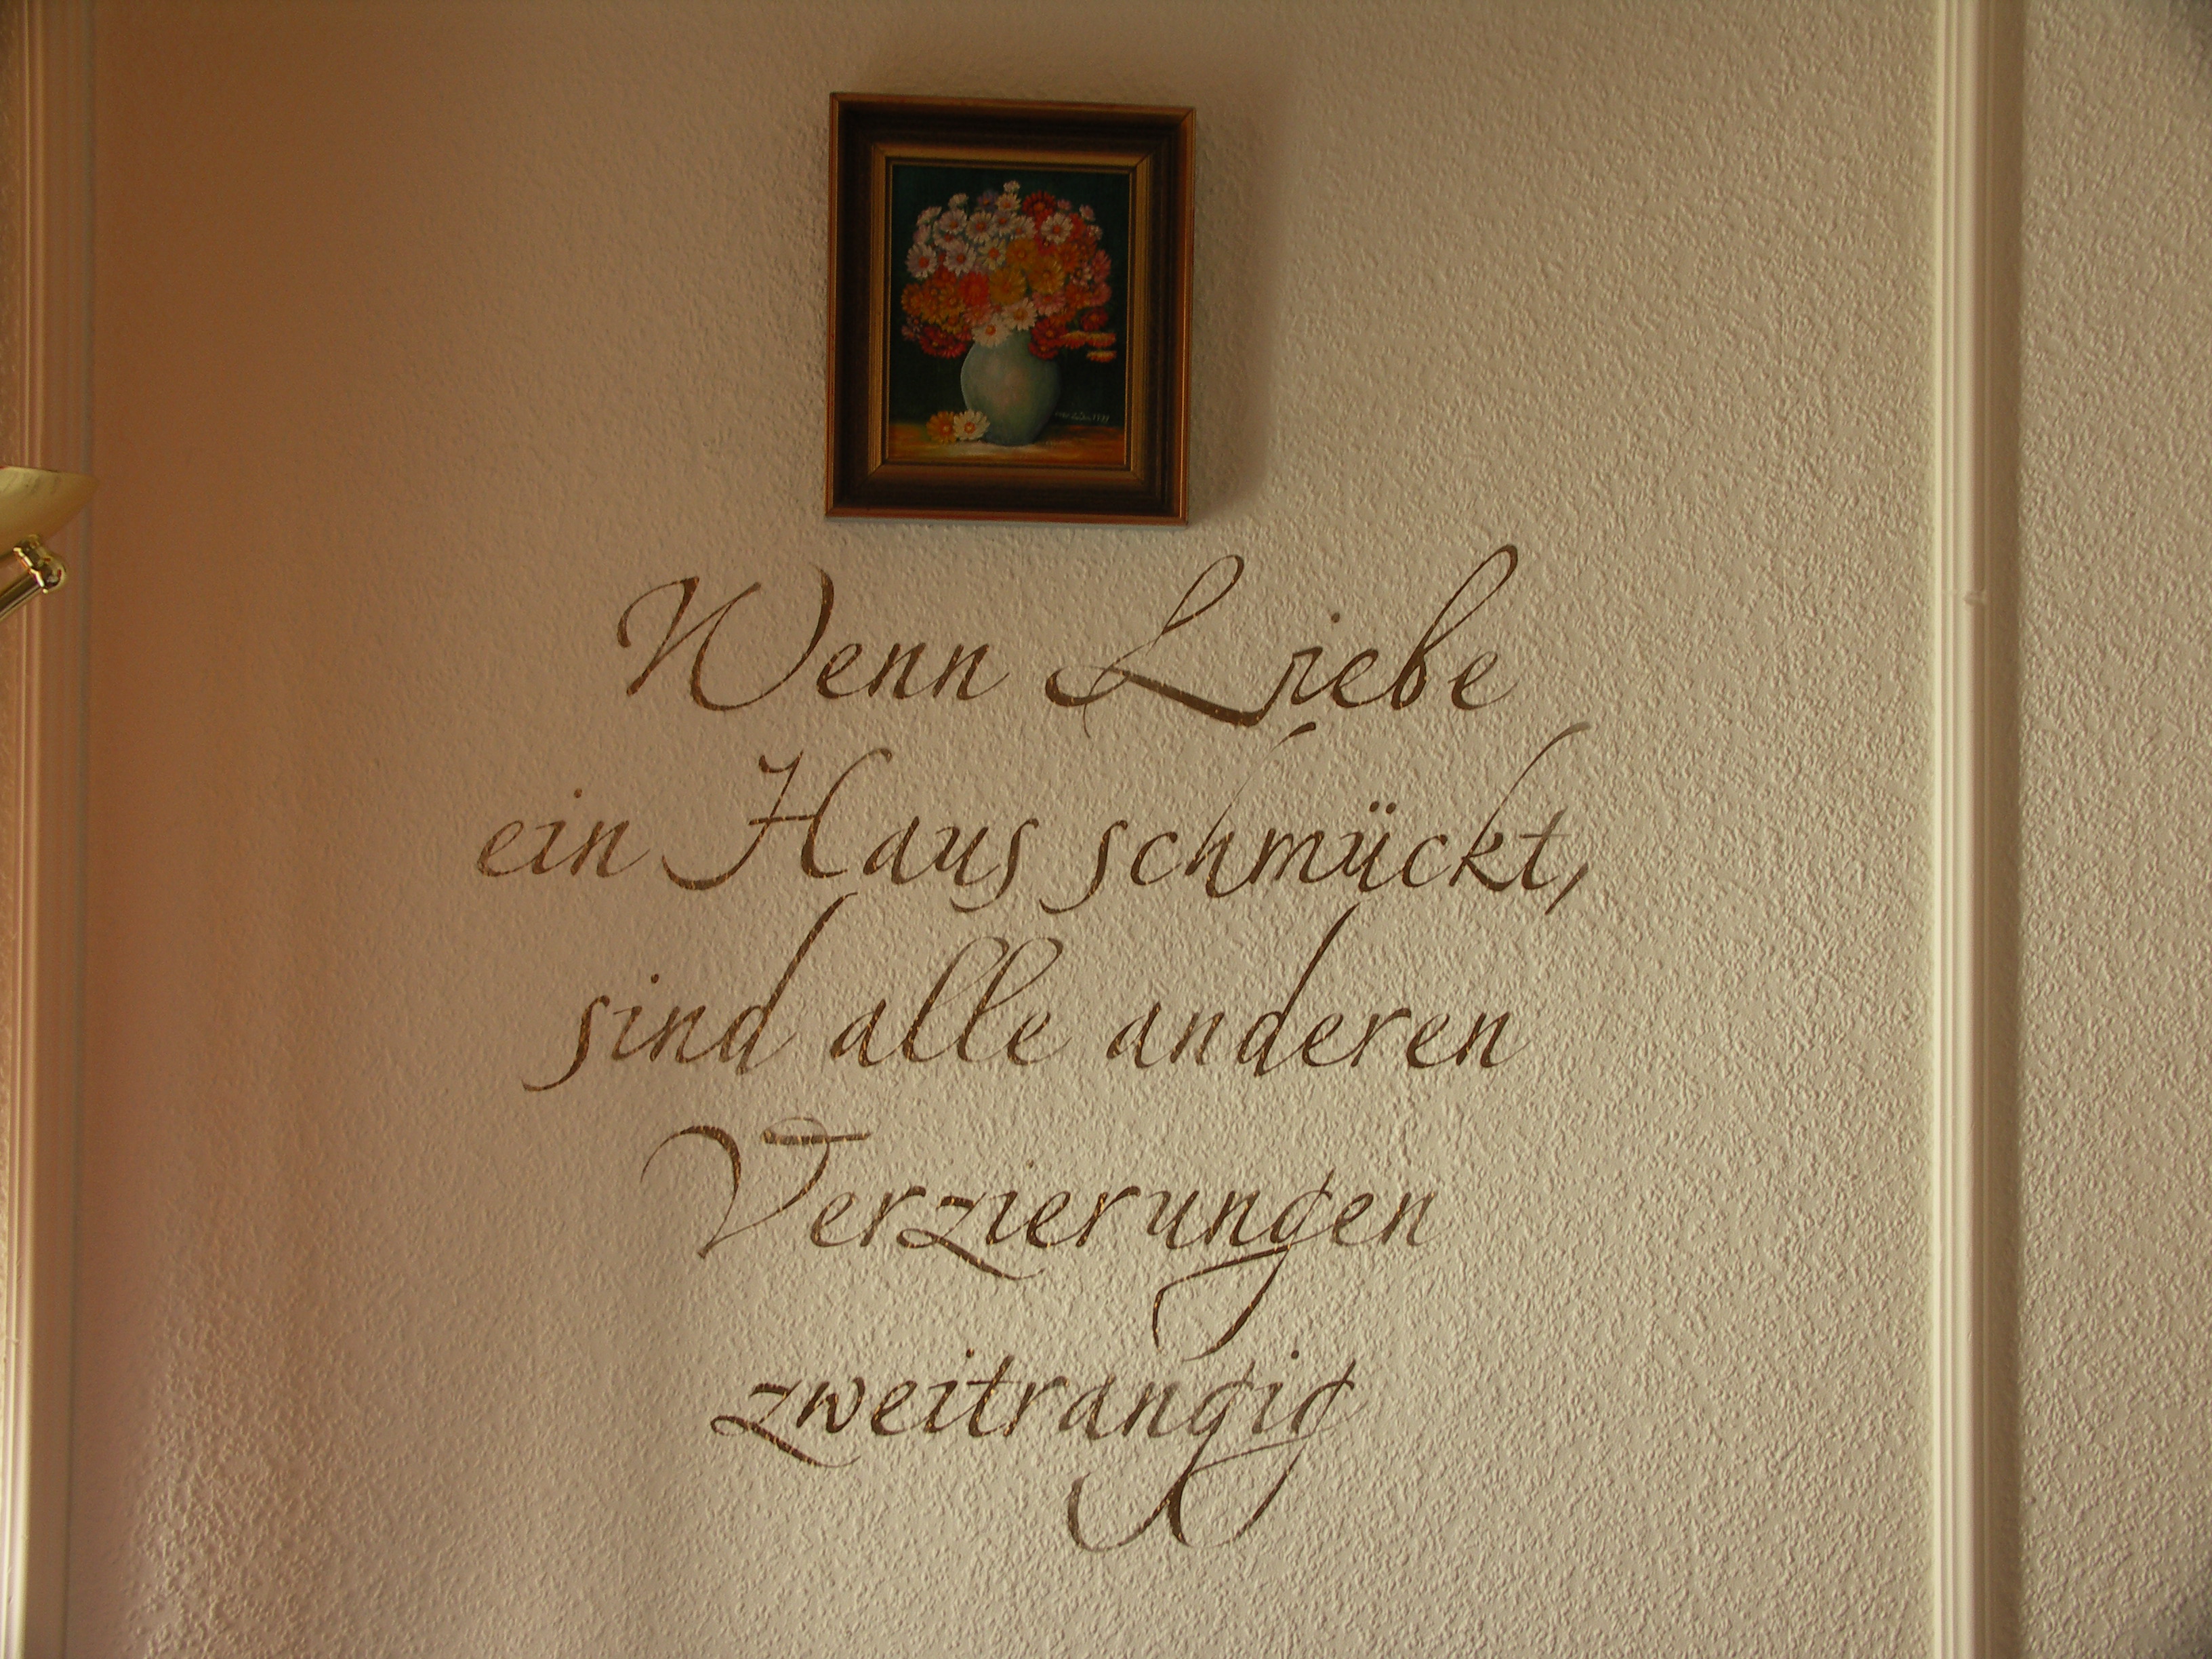 Wenn Liebe
ein Haus schmückt,
sind alle anderen
Verzierungen
zweitrangig